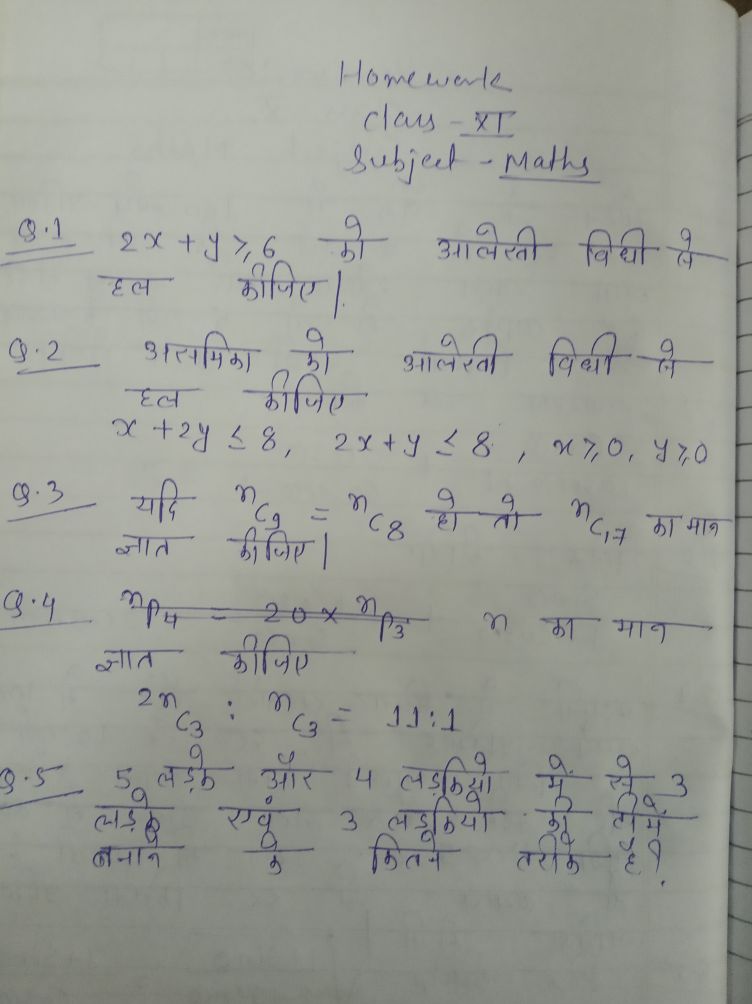 Homework
Class - XI
Subject - Maths
Q.1 2x + y ≥ 6 को आलेखी विधी से
हल कीजिए |.
Q.2 असमिका को आलेखी विधी से
हल कीजिए
x + 2y ≤ 8, 2x + y ≤ 8, x ≥ 0, y ≥ 0
Q.3 यदि ⁿC₉ = ⁿC₈ हो तो ⁿC₁₇ का मान
ज्ञात कीजिए |
Q.4 ⁿP₄ = 20 × ⁿP₃ n का मान
ज्ञात कीजिए
²ⁿC₃ : ⁿC₃ = 11:1
Q.5 5 लड़के और 4 लड़कियो में से 3
लड़के एवं 3 लड़कियो की टीमें
बनाने के कितने तरीके है?